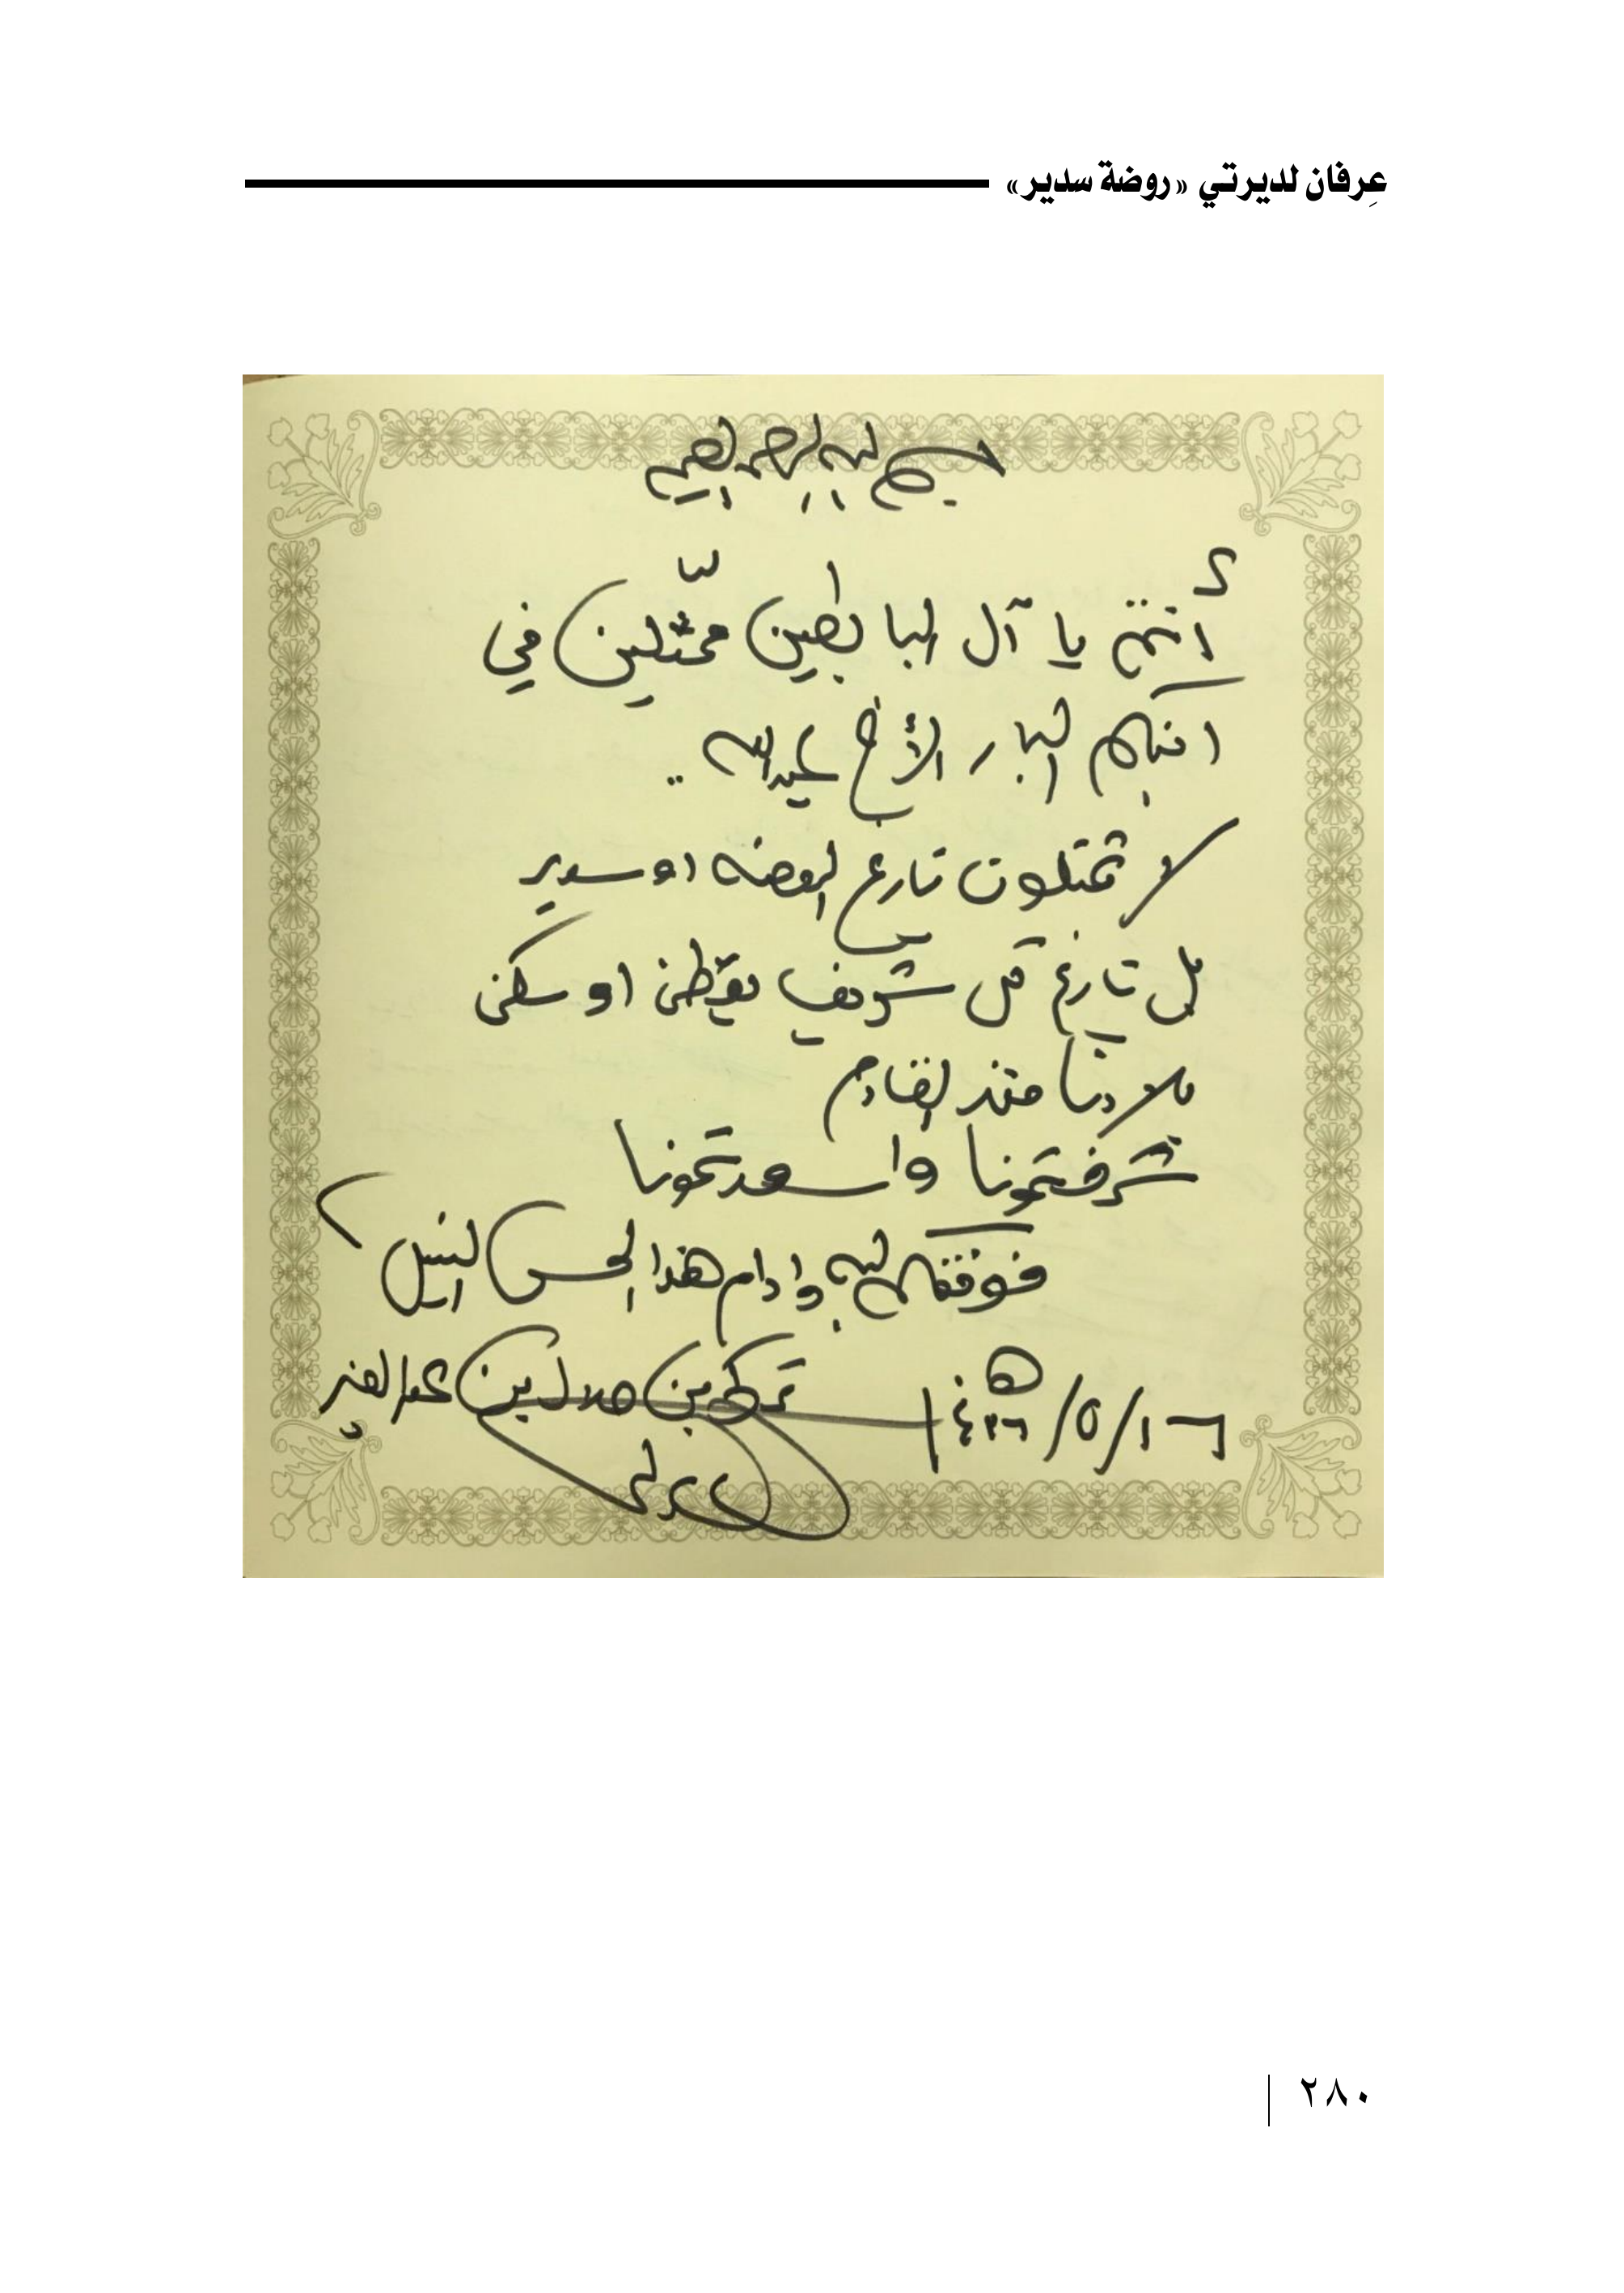 عِرفان لديرتي «روضة سدير»
بسم الله الرحمن الرحيم
أنتم يا آل البابطين ممثلين في
ابنكم البار الأخ عبدالله ..
لا تمثلون تاريخ الروضه او سدير
بل تاريخ كل شريف يقطن او سكن
بلادنا منذ القادم
شرفتمونا واسعدتمونا
فوفقكم الله وادام هذا الحس النبيل
تركي بن طلال بن عبدالعزيز
١٤٣٦/٥/١٦ هـ
٢٨٠